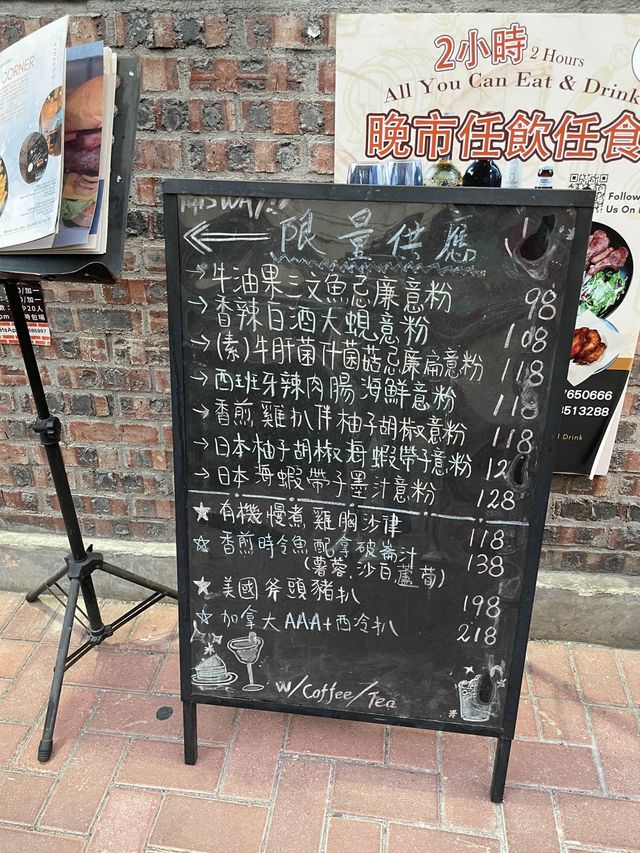 CORNER
2小時 2 Hours
All You Can Eat & Drink
晚市任飲任食
Follow
Us On
THIS WAY!!
限量供應
→牛油果三文魚忌廉意粉 98
→香辣白酒大蜆意粉 108
→(素)牛肝菌什菌菇忌廉扁意粉 118
→西班牙辣肉腸海鮮意粉 118
→香煎雞扒伴柚子胡椒意粉 118
→日本柚子胡椒海蝦帶子意粉
→日本海蝦帶子墨汁意粉 128
★有機慢煮雞胸沙律 118
☆香煎時令魚配拿破崙汁 138
(薯蓉,沙白,蘆荀)
★美國斧頭豬扒 198
☆加拿大AAA+西冷扒 218
w/Coffee/Tea
7650666
3513288
Drink